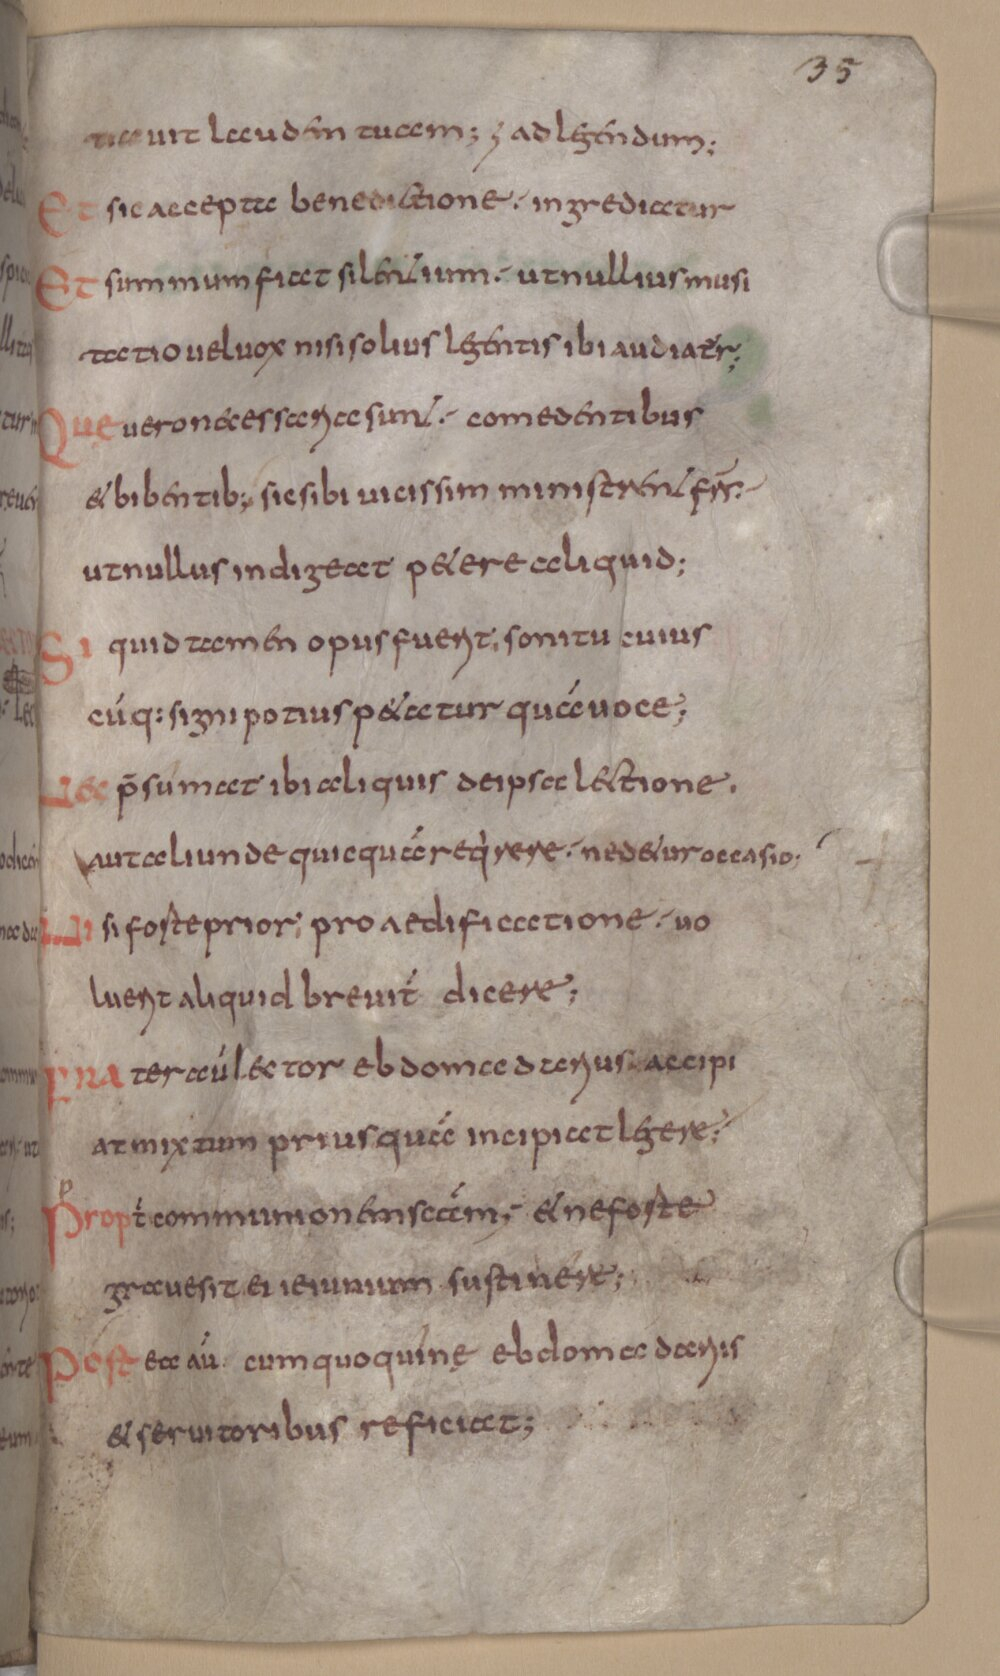 35
tiavit laudem tuam; & ad legendum;
Et sic accepta benedictione. ingrediatur
Et summum fiat silentium. ut nullius musi
tatio vel vox nisi solius legentis ibi audiatur;
Que vero necessaria sunt. comedentibus
& bibentib; sic sibi vicissim ministrent frs.
ut nullus indigeat petere aliquid;
Si quid tamen opus fuerit, sonitu cuius
cuq: signi potius petatur quā voce;
Nec p̄sumat ibi aliquis de ipsa lectione.
aut aliunde quicquā reqirere. ne detur occasio;
Nisi forte prior; pro aedificatione. vo
luerit aliquid brevit dicere;
Frater aū lector ebdomadarius accipi
at mixtum priusquā incipiat legere;
Propt communionem scām; & ne forte
grave sit ei ieiunium sustinere;
Postea aū. cum quoquine ebdomadariis
& servitoribus reficiat;